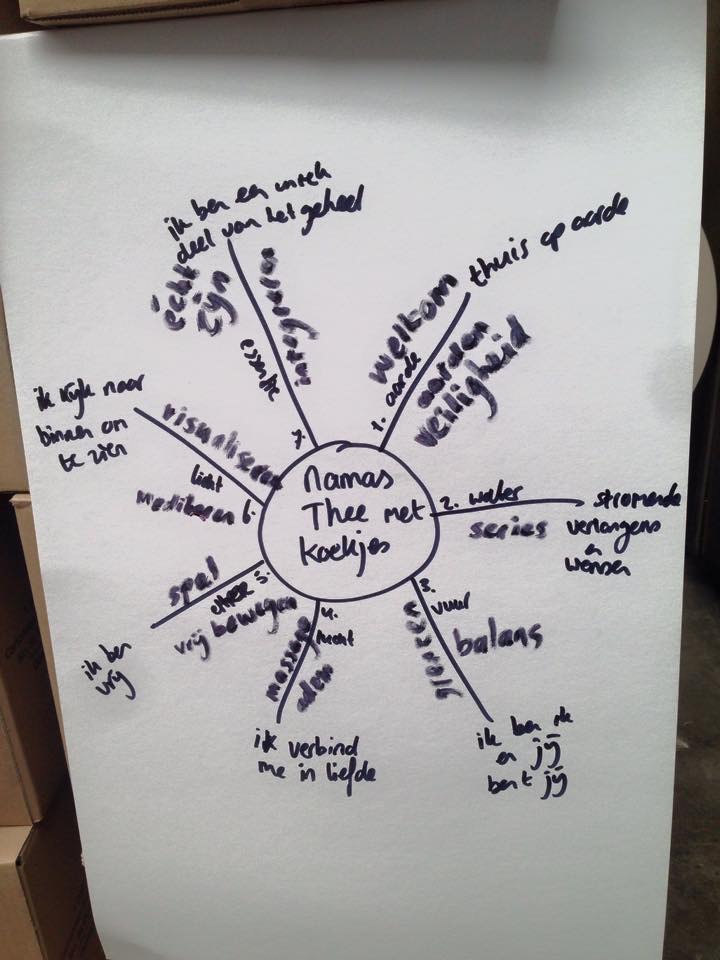 namas
Thee met
koekjes
1. aarde
welkom
aarden
veiligheid
thuis op aarde
2. water
series
stromende
verlangens
en
wensen
3. vuur
balans
ik ben ik
en jij
bent jij
4. lucht
massage
adem
ik verbind
me in liefde
5. ether
spel
vrij bewegen
ik ben
vrij
6. licht
visualiseren
mediteren
ik kijk naar
binnen om
te zien
7. essentie
écht
zijn
ik ben een uniek
deel van het geheel